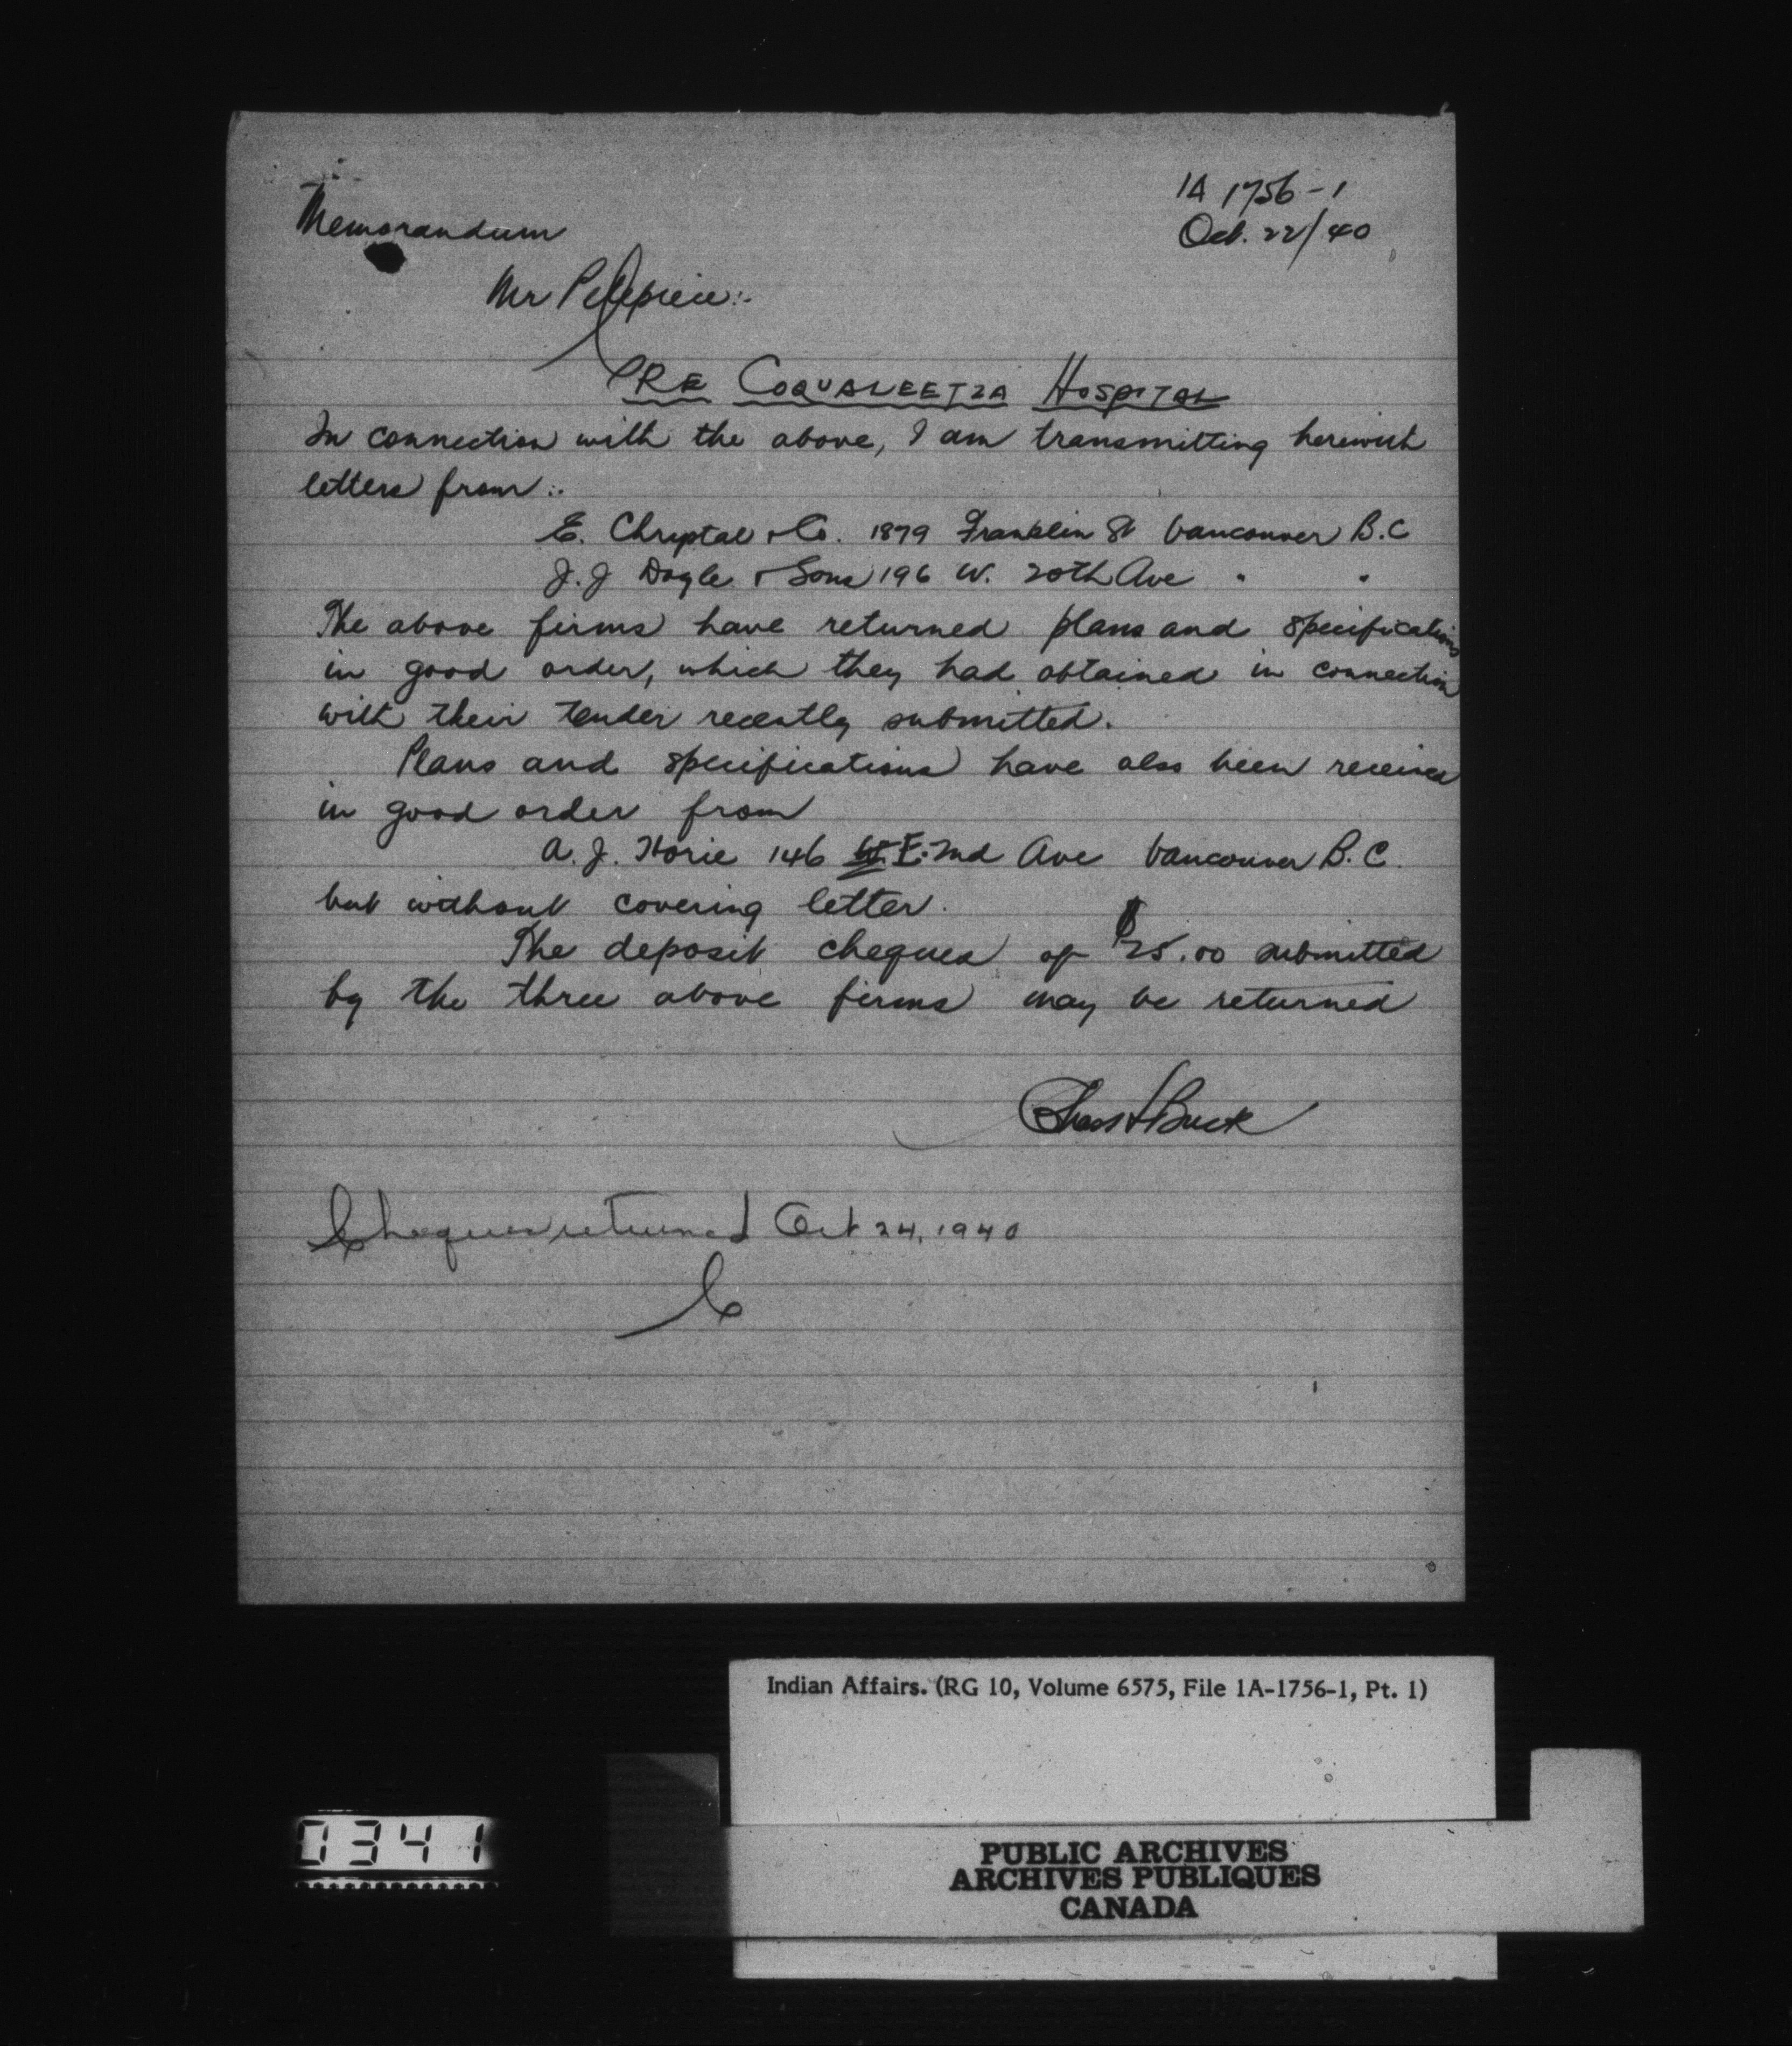 1A 1756-1
Memorandum
Oct. 22/40
Mr
RE COQUALEETZA HOSPITAL
In connection with the above, I am transmitting herewith
letters from:.
E. Chrystal & Co. 1879 Franklin St Vancouver B.C
J.J Dogle & Sons 196 W. 20th Ave " "
The above firms have returned plans and specifications
in good order, which they had obtained in connection
with their tender recently submitted.
Plans and specifications have also been received
in good order from
A. J. Horie 146 W. E. 2nd Ave Vancouver B.C.
but without covering letter.
The deposit cheques of $25.00 submitted
by the three above firms may be returned
Buck
Cheques returned Oct 24, 1940
Indian Affairs. (RG 10, Volume 6575, File 1A-1756-1, Pt. 1)
0341
PUBLIC ARCHIVES
ARCHIVES PUBLIQUES
CANADA